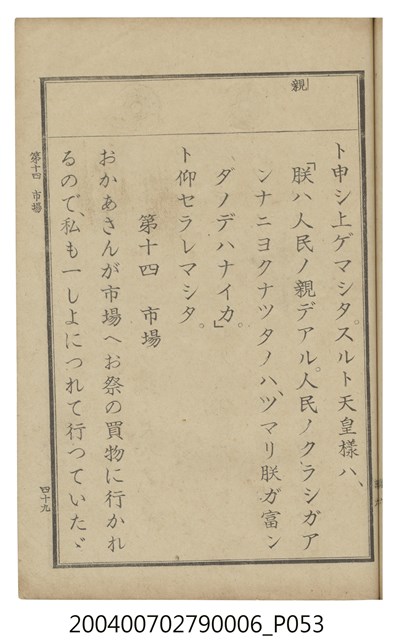 親
ト申シ上ゲマシタ。スルト天皇樣ハ、
「朕ハ人民ノ親デアル。人民ノクラシガア
ンナニヨクナツタノハ、ツマリ朕ガ富ン
ダノデハナイカ。」
ト仰セラレマシタ。
第十四 市場
おかあさんが市場へお祭の買物に行かれ
るので、私も一しよにつれて行つていたゞ
第十四 市場
四十九
200400702790006_P053